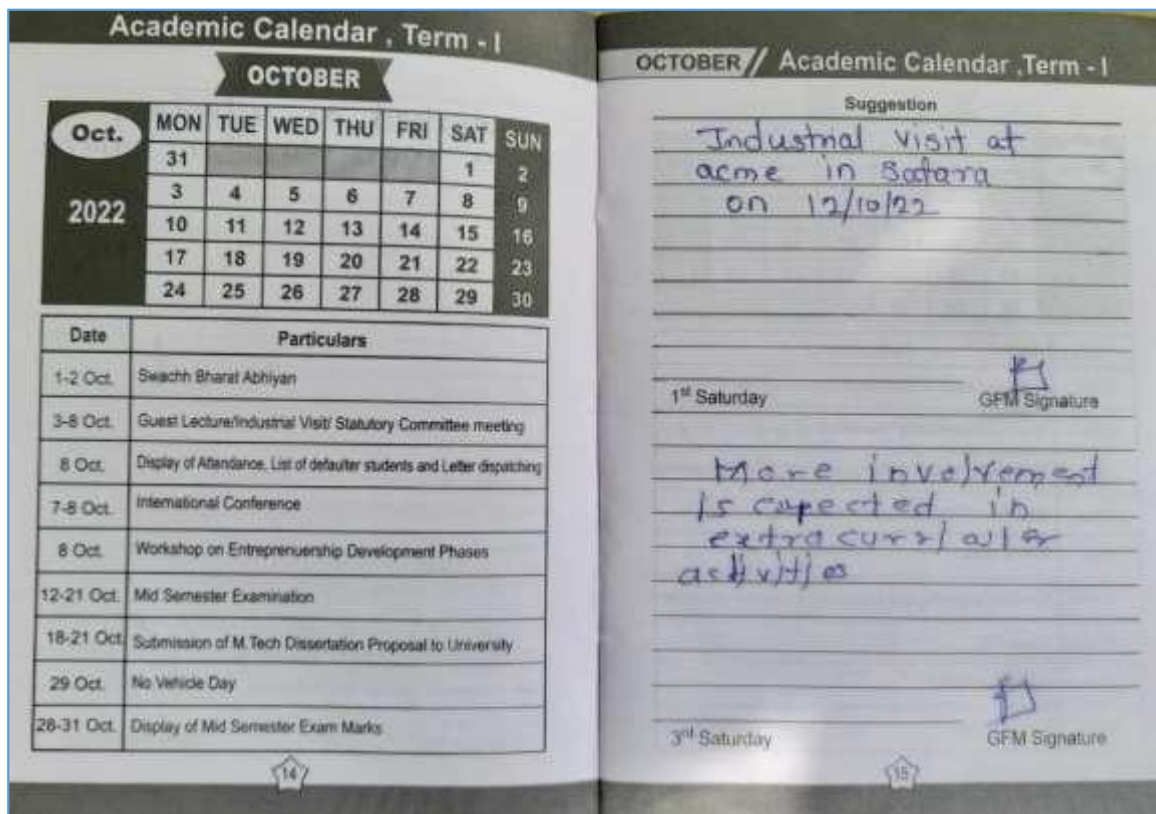 Academic Calendar , Term - I
OCTOBER
Oct.
2022
MON TUE WED THU FRI SAT SUN
31 1 2
3 4 5 6 7 8 9
10 11 12 13 14 15 16
17 18 19 20 21 22 23
24 25 26 27 28 29 30
Date Particulars
1-2 Oct. Swachh Bharat Abhiyan
3-8 Oct. Guest Lecture/Industrial Visit/ Statutory Committee meeting
8 Oct. Display of Attendance, List of defaulter students and Letter dispatching
7-8 Oct. International Conference
8 Oct. Workshop on Entreprenuership Development Phases
12-21 Oct. Mid Semester Examination
18-21 Oct. Submission of M.Tech Dissertation Proposal to University
29 Oct. No Vehicle Day
28-31 Oct. Display of Mid Semester Exam Marks
14
OCTOBER // Academic Calendar ,Term - I
Suggestion
Industrial visit at
acme in Satara
on 12/10/22
1st Saturday GFM Signature
More involvement
is expected in
activities
3rd Saturday GFM Signature
15